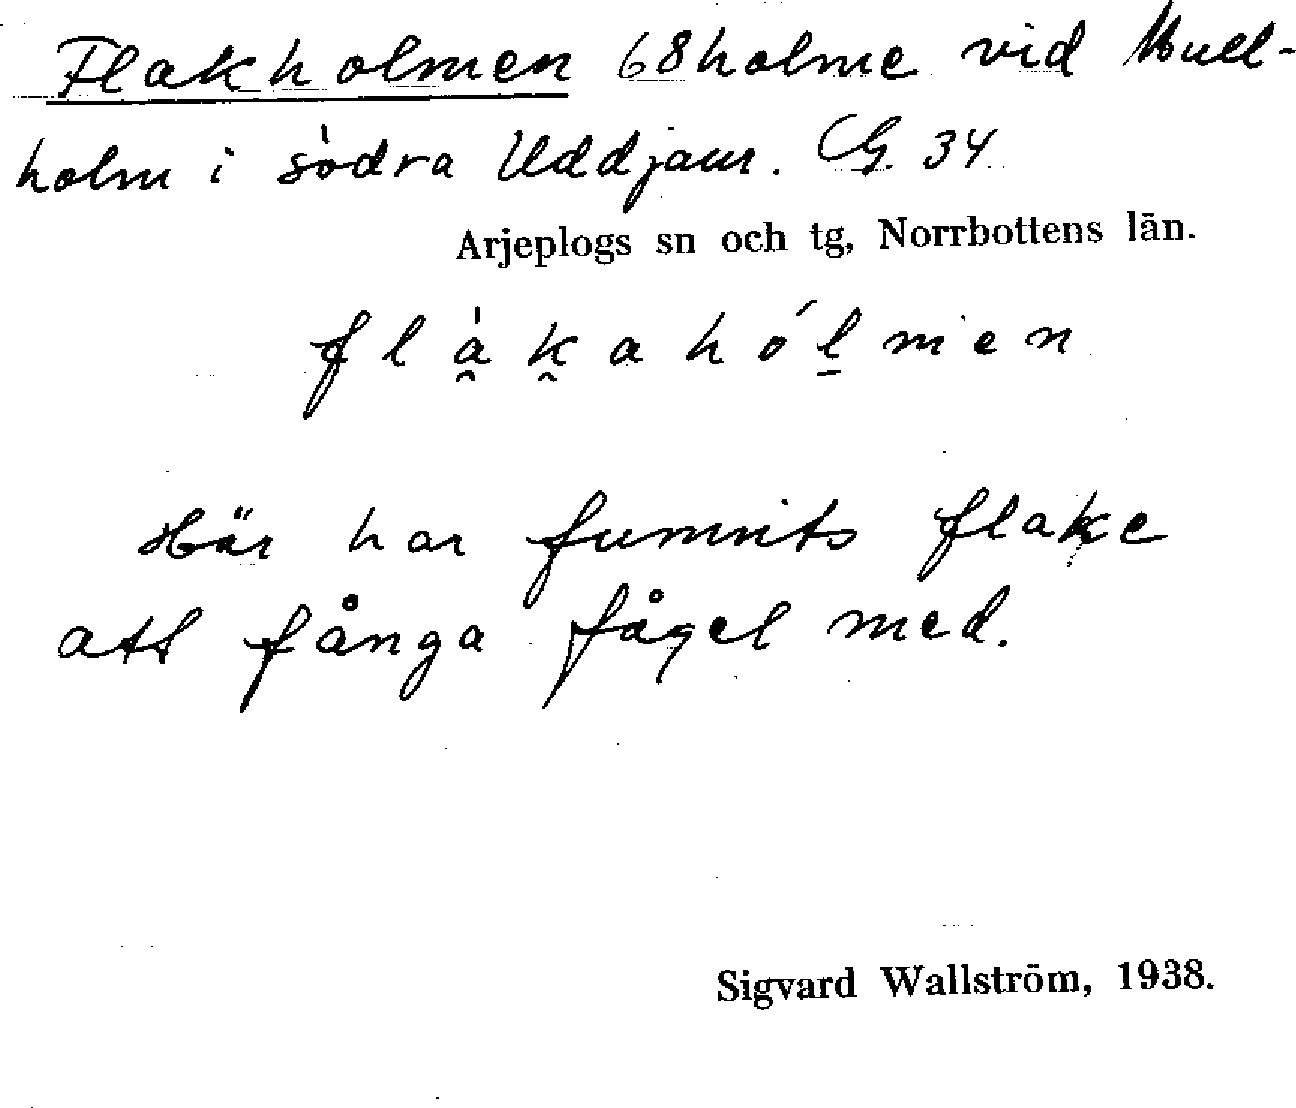 Flakholmen 68 holme vid Mull-
holm i södra Uddjaur. G. 34
Arjeplogs sn och tg, Norrbottens län.
flákahólmen
Här har funnits flake
att fånga fågel med.
Sigvard Wallström, 1938.